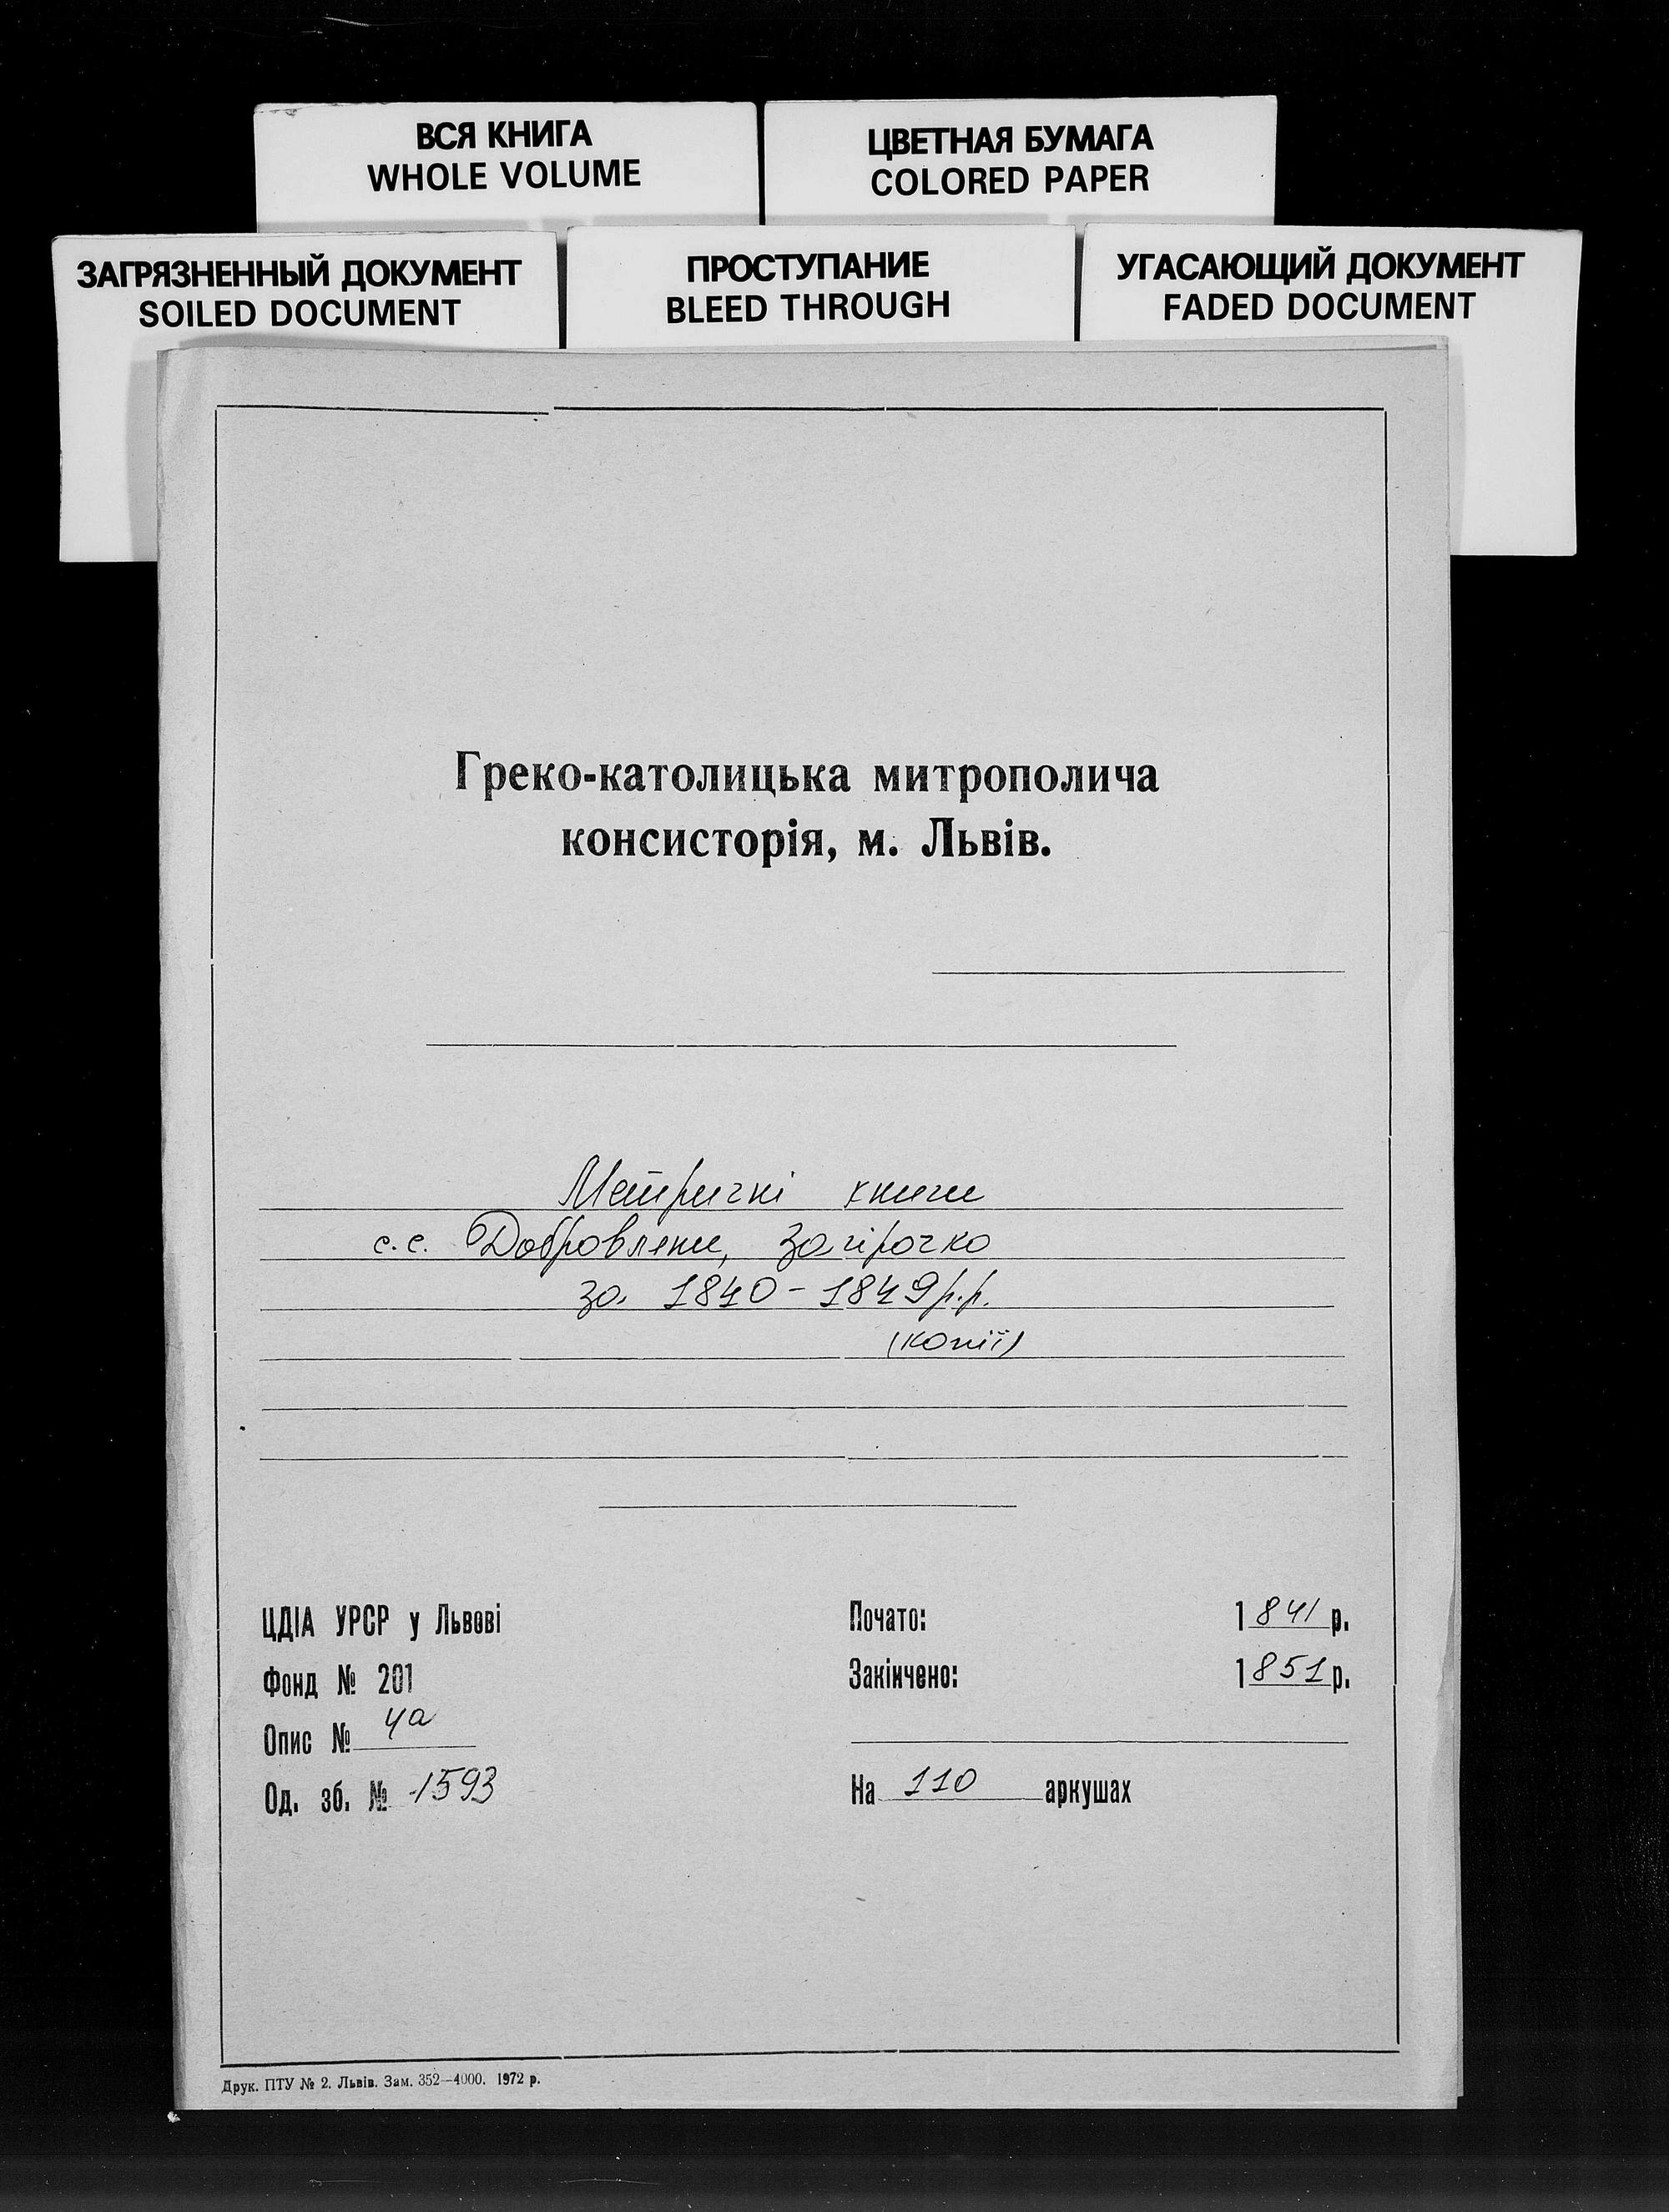 ВСЯ КНИГА
WHOLE VOLUME
ЦВЕТНАЯ БУМАГА
COLORED PAPER
ЗАГРЯЗНЕННЫЙ ДОКУМЕНТ
SOILED DOCUMENT
ПРОСТУПАНИЕ
BLEED THROUGH
УГАСАЮЩИЙ ДОКУМЕНТ
FADED DOCUMENT
Греко-католицька митрополича
консисторія, м. Львів.
Метричні книги
с.с. Добровляни, Загірочко
за 1840-1849 р.р.
(копії)
ЦДІА УРСР у Львові
Фонд № 201
Опис № 4а
Од. зб. № 1593
Почато: 1841 р.
Закінчено: 1851 р.
На 110 аркушах
Друк. ПТУ № 2. Львів. Зам. 352—4000. 1972 р.